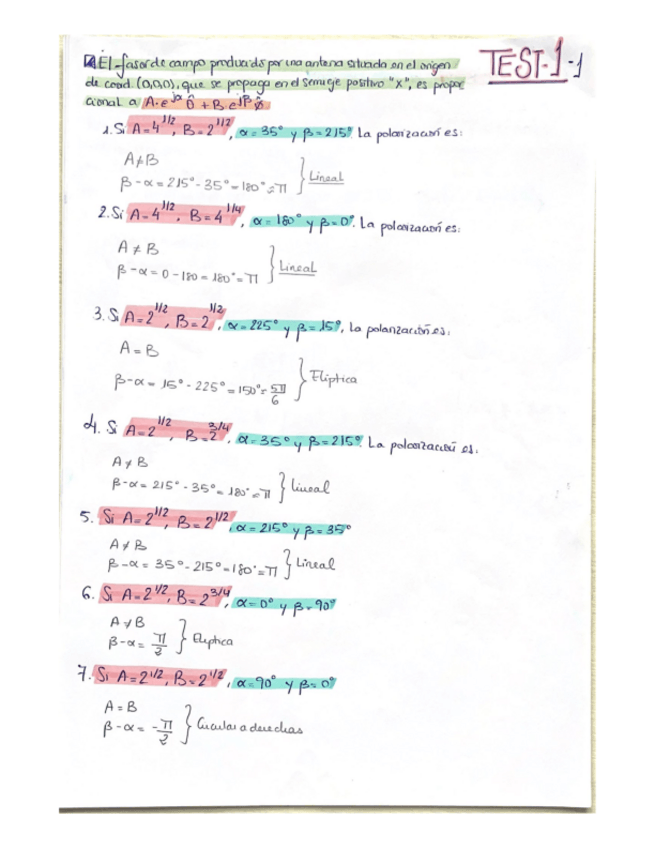 TEST-1-1
El fasor de campo producido por una antena situada en el origen
de coord. (0,0,0), que se propaga en el semieje positivo "x", es propor
cional a A·e^jα θ̂ + B·e^jβ φ̂
1. Si A=4^1/2, B=2^1/2, α=35° y β=215°. La polarización es:
A≠B
β-α=215°-35°=180°=π } Lineal
2. Si A=4^1/2, B=4^1/4, α=180° y β=0°. La polarización es:
A ≠ B
β-α=0-180=180°=π } Lineal
3. Si A=2^1/2, B=2^1/2, α=225° y β=15°, La polarización es:
A = B
β-α= 15°-225°=150°=5π/6 } Elíptica
4. Si A=2^1/2, B=2^3/4, α=35° y β=215° La polarización es.
A≠B
β-α= 215°-35°=180°=π } lineal
5. Si A=2^1/2, B=2^1/2, α=215° y β=35°
A≠B
β-α= 35°-215°=180°=π } Lineal
6. Si A=2^1/2, B=2^3/4, α=0° y β=90°
A≠B
β-α= π/2 } Elíptica
7. Si A=2^1/2, B=2^1/2, α=90° y β=0°
A=B
β-α= -π/2 } Circular a derechas